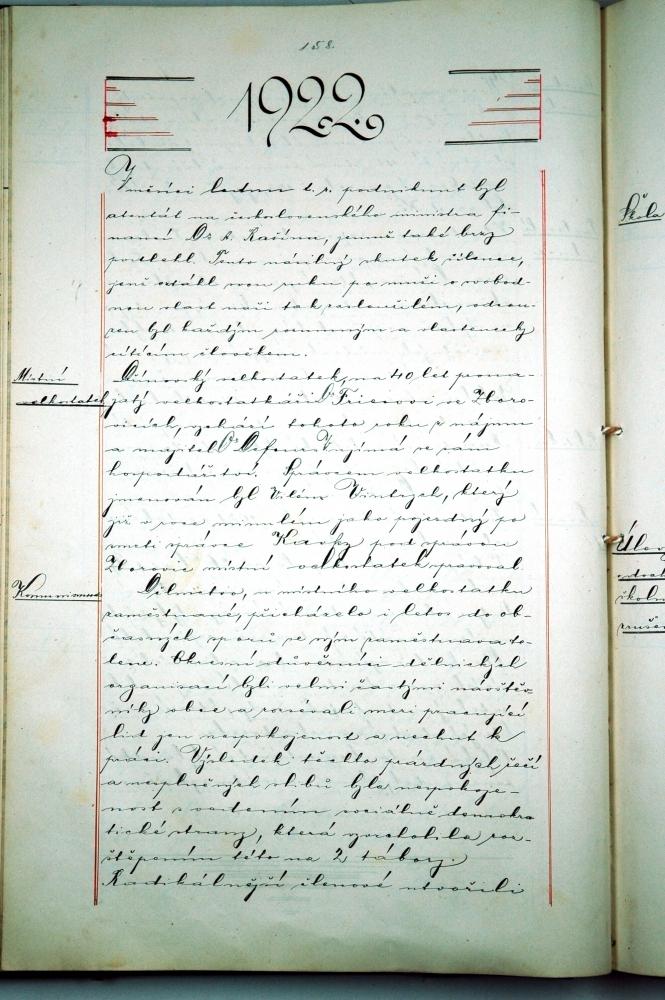 158.
1922.
V měsíci lednu t. r. podniknut byl
atentát na československého ministra fi-
nancí Dr. A. Rašína, jemuž také brzy
podlehl. Tento násilný skutek šílence,
jenž vztáhl svou ruku po muži o svobod-
nou vlast naši tak zasloužilém, odsou-
zen byl každým rozumným a vlastenecky
cítícím člověkem.
Místní
velkostatek
velkostatek, na 40 let prona-
jatý velkostatkáři Dr Friesovi ve Zboro-
vicích, vychází tohoto roku z nájmu
a majitel Dr ujímá se sám
hospodářství. Správcem velkostatku
jmenován byl Vilém který
již v roce minulém jako pojezdný po
smrti správce Kavky pod správou
Zborovic místní velkostatek spravoval.
Komunismus
Dělnictvo, u místního velkostatku
zaměstnané, přicházelo i letos do ob-
časných sporů se svým zaměstnavate-
lem. Okresní důvěrníci dělnických
organisací byli velmi častými návštěv-
níky obce a rozsévali mezi pracující
lid jen nespokojenost a nechut k
práci. Výsledek těchto prázdných řečí
a nesplněných slibů byla nespoko-
nost s vedením sociálně demokra-
tické strany, která vyvrcholila roz-
štěpením této na 2 tábory.
Radikálnější členové utvořili
Škola
školní